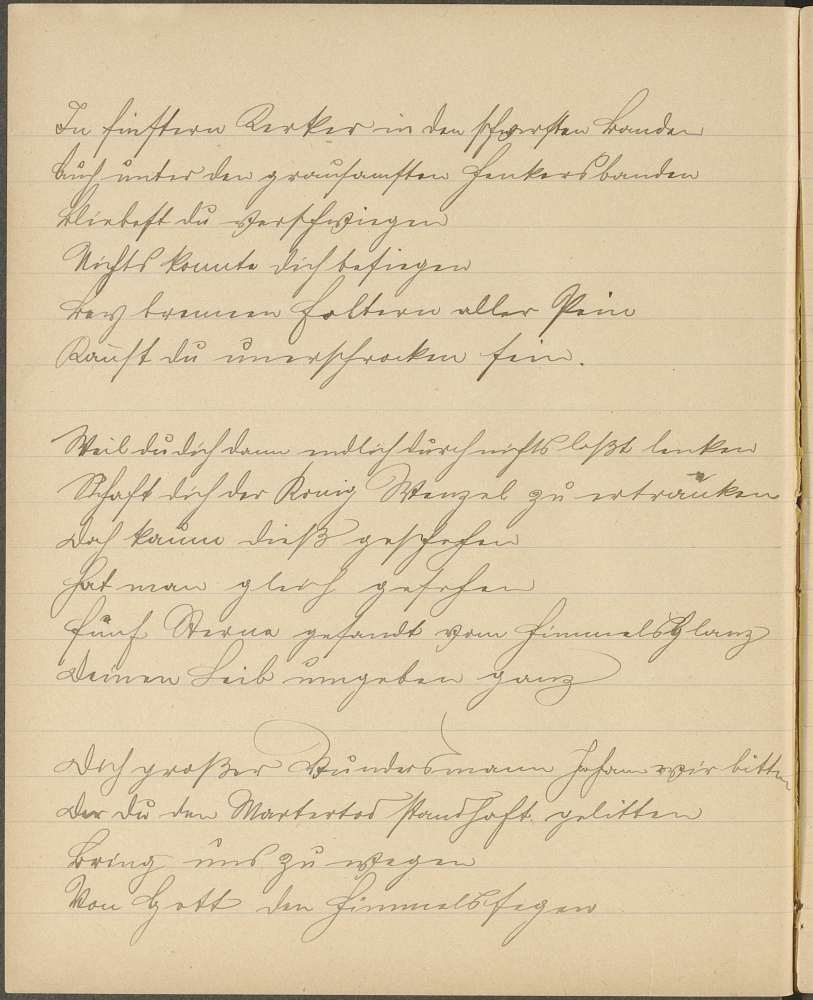 In finstern Kerker in den schwersten Banden
Auch unter den grausamsten Henkersbanden
Bliebest du verschwiegen
Nichts konnte dich besiegen
Bey brennen Foltern aller Pein
Kanst du unerschrocken sein.
Weil du dich dann endlich durch nichts laßt lenken
Schaft dich der König Wenzel zu ertränken
Doch kaum dieß geschehen
Hat man gleich gesehen
Fünf Sterne gesandt vom Himmelsglanz
Deinen Leib umgeben ganz
Dich großer Wundersmann Johann wir bitten
Der du den Martertod standhaft gelitten
Bring uns zu wegen
Von Gott den Himmelssegen